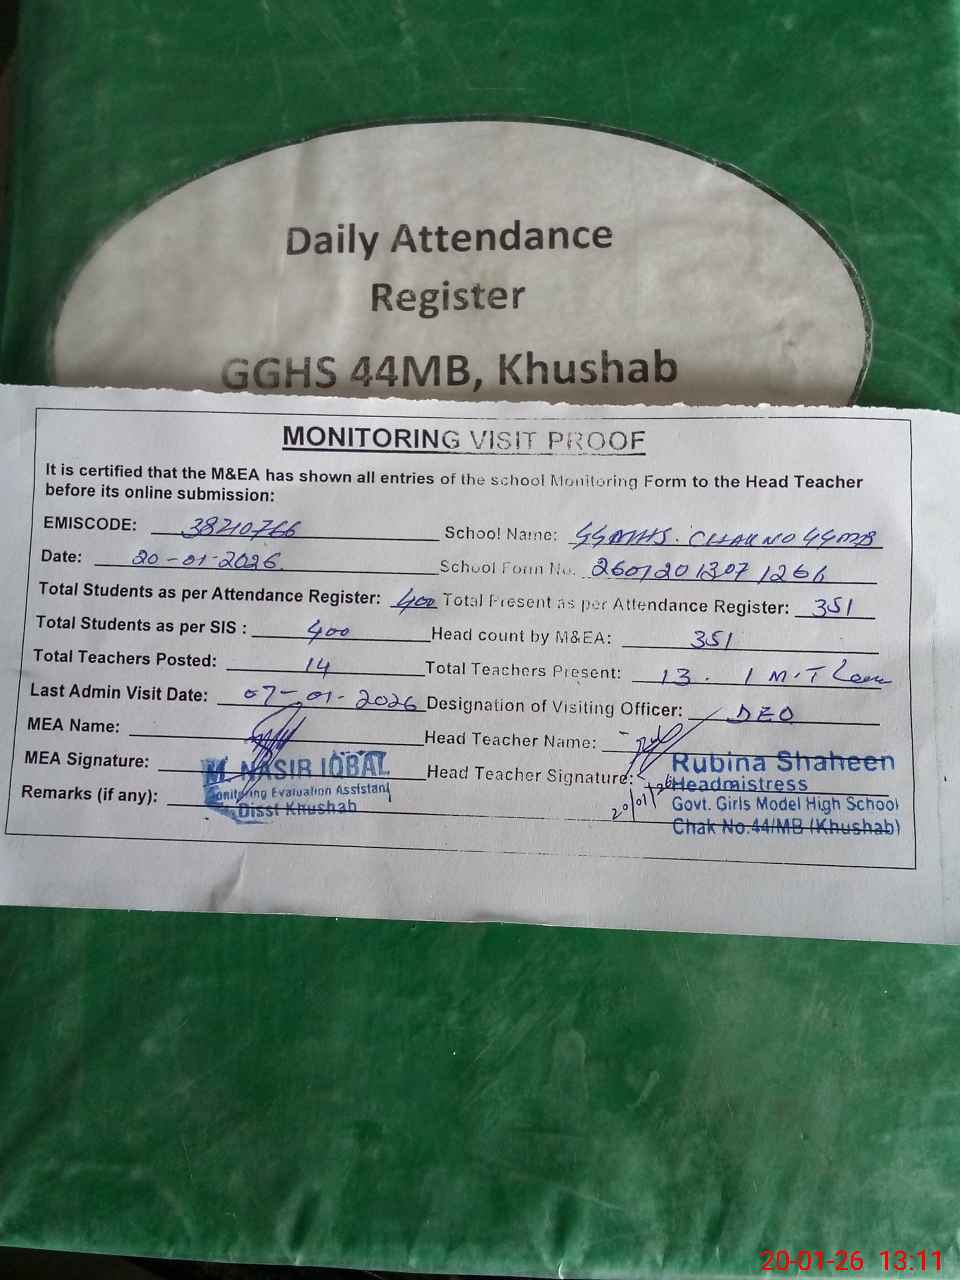 Daily Attendance
Register
GGHS 44MB, Khushab
MONITORING VISIT PROOF
It is certified that the M&EA has shown all entries of the school Monitoring Form to the Head Teacher
before its online submission:
EMISCODE: 38210766 School Name: GGMHS. CHAK NO 44MB
Date: 20-01-2026 School Form No. 2601201307126
Total Students as per Attendance Register: 400 Total Present as per Attendance Register: 351
Total Students as per SIS : 400 Head count by M&EA: 351
Total Teachers Posted: 14 Total Teachers Present: 13. 1 M.T Leave
Last Admin Visit Date: 07-01-2026 Designation of Visiting Officer: DEO
MEA Name: Head Teacher Name:
MEA Signature: M NASIR IQBAL Head Teacher Signature: Rubina Shaheen
Monitoring Evaluation Assistant Headmistress
Remarks (if any): Disst Khushab 20/01/26 Govt. Girls Model High School
Chak No.44/MB (Khushab)
20-01-26 13:11